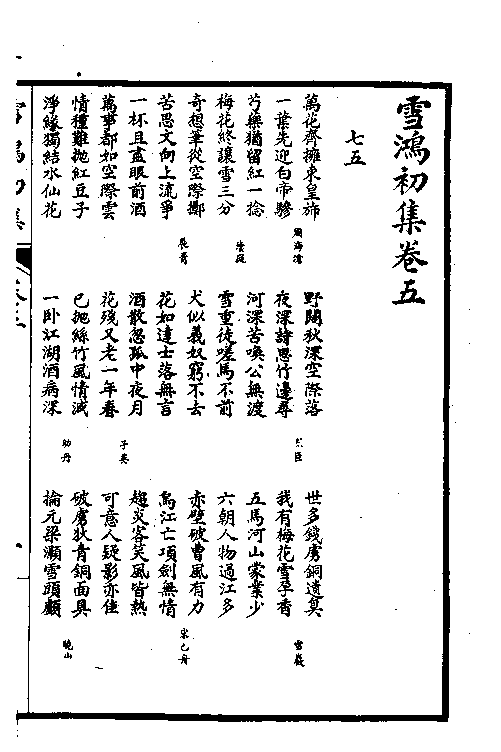 雪鴻初集卷五
七五
萬花齊擁東皇旆
一葉先迎白帝驂
芍藥猶留紅一捻
梅花終讓雪三分
奇想筆從空際擲
苦思文向上流爭
一杯且盡眼前酒
萬事都如空際雲
情種難拋紅豆子
淨緣獨結水仙花
野闊秋深空際落
夜深詩思竹邊尋
河深苦喚公無渡
雪重徒嗟馬不前
犬似義奴窮不去
花如達士落無言
酒散忽孤中夜月
花殘又老一年春
子英
已拋絲竹風情減
一卧江湖酒病深
幼丹
世多錢虜銅遺臭
我有梅花雪孕香
五馬河山蒙業少
六朝人物過江多
赤壁破曹風有力
烏江亡項劍無情
宋己舟
趨炎客笑風皆熱
可意人疑影亦佳
破虜狄青銅面具
掄元梁灝雪頭顱
曉山